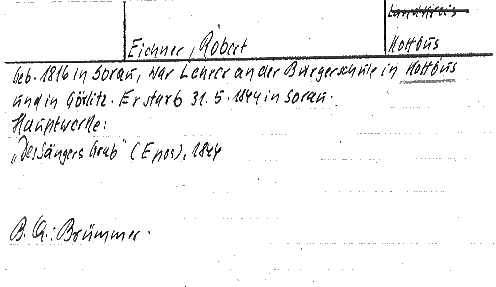 Landkreis
Eichner, Robert
Kottbus
geb. 1816 in Sorau, war Lehrer an der Bürgerschule in Kottbus
und in Görlitz. Er starb 31. 5. 1844 in Sorau.
Hauptwerke:
„Des Sängers Grab" (Epos), 1844
B. Qu.: Brümmer.